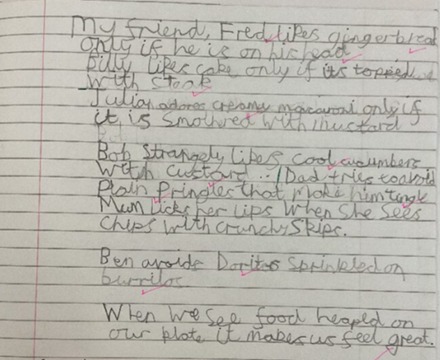 My friend, Fred likes gingerbread
only if he is on his head
Billy likes cake only if its topped
with steak
Julian adores creamy macaroni only if
it is smothred with mustard
Bob strangely likes cool cucumbers
with custard... Dad tries to avoid
Plain Pringles that make him tingle
Mum licks her lips when she sees
chips with crunchy skips.
Ben avoids Doritos sprinkled on
burritos
When we see food heaped on
our plate it makes us feel great.